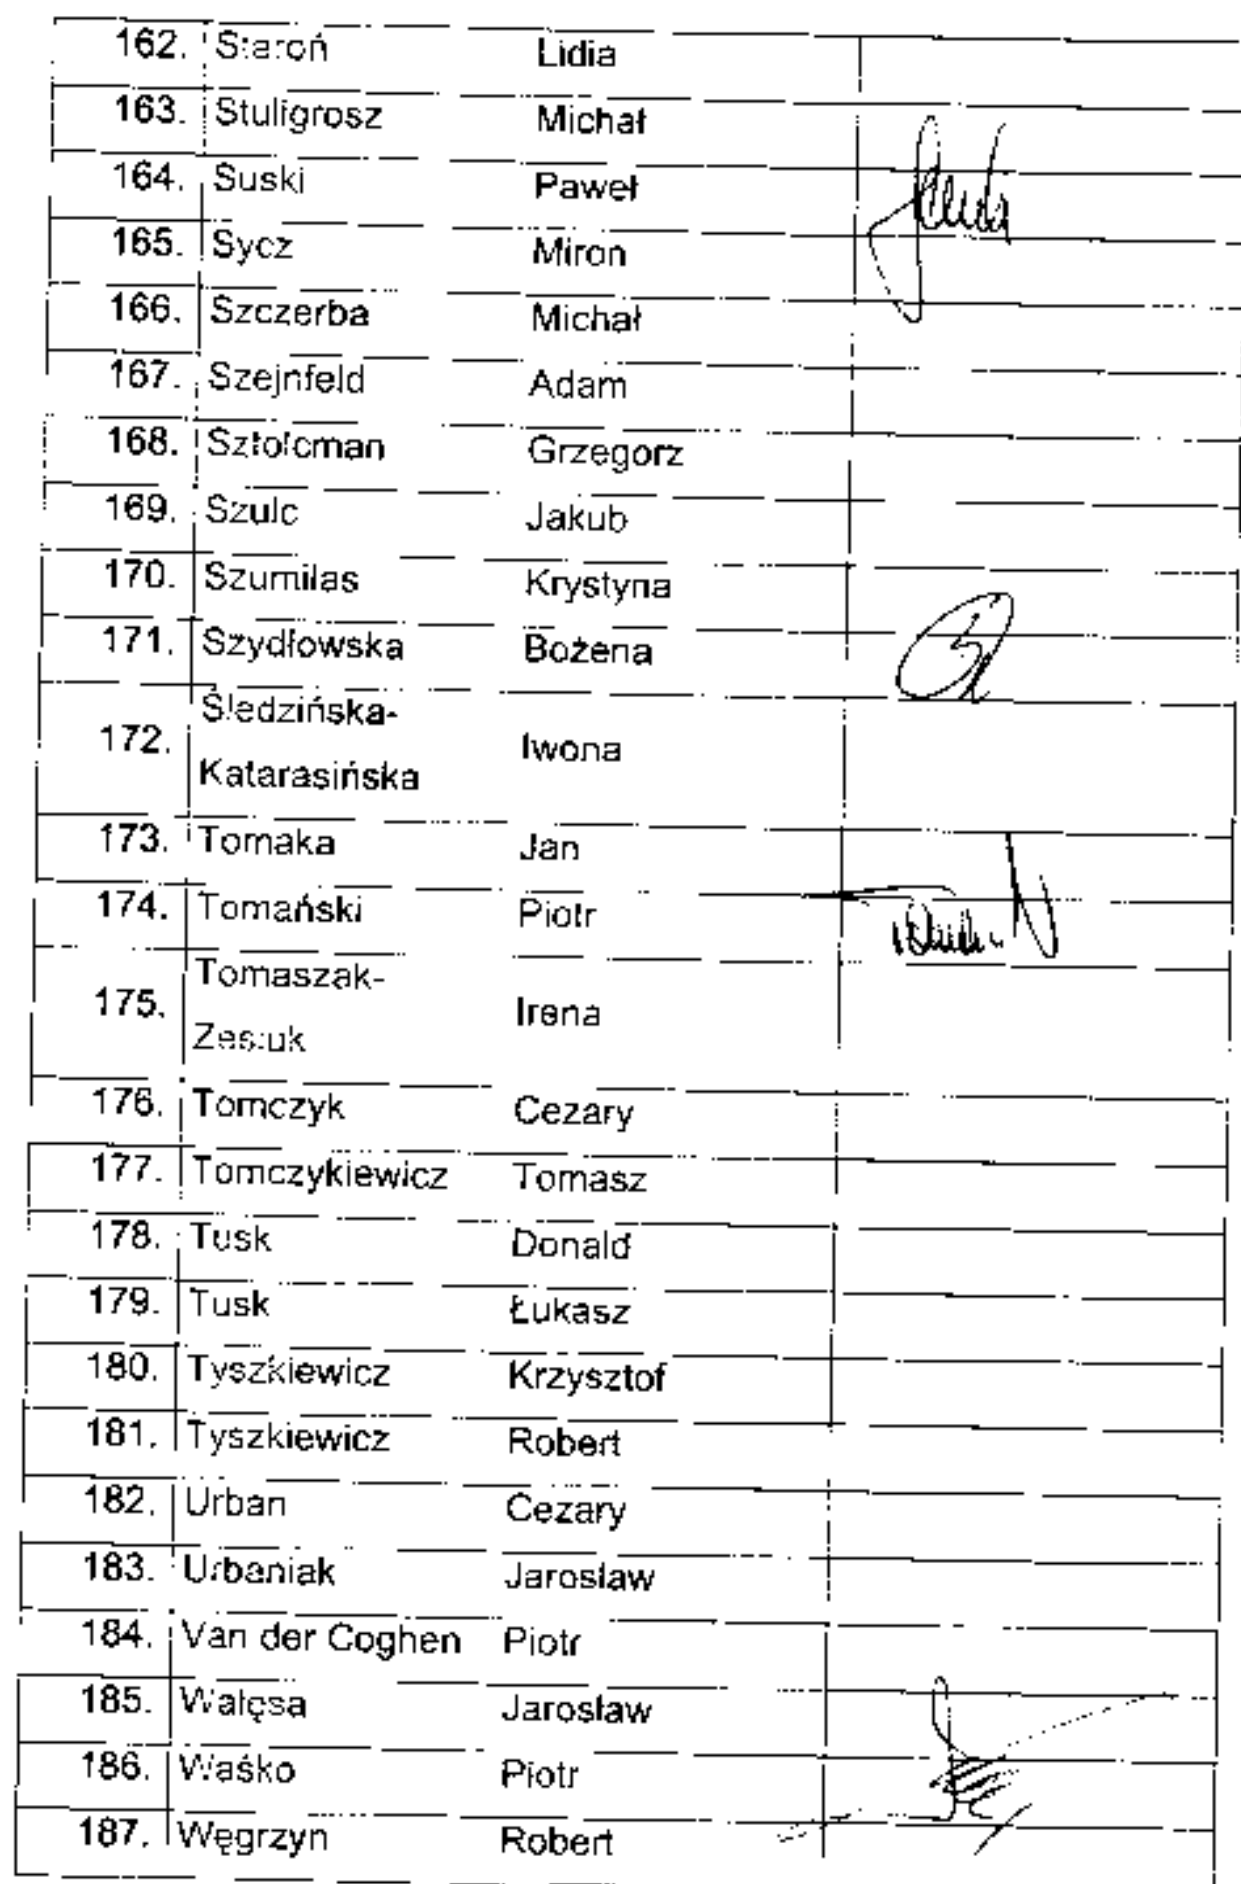 162. Staroń Lidia
163. Stuligrosz Michał
164. Suski Paweł
165. Sycz Miron
166. Szczerba Michał
167. Szejnfeld Adam
168. Sztolcman Grzegorz
169. Szulc Jakub
170. Szumilas Krystyna
171. Szydłowska Bożena
172. Śledzińska-
Katarasińska Iwona
173. Tomaka Jan
174. Tomański Piotr
175. Tomaszak-
Zesiuk Irena
176. Tomczyk Cezary
177. Tomczykiewicz Tomasz
178. Tusk Donald
179. Tusk Łukasz
180. Tyszkiewicz Krzysztof
181. Tyszkiewicz Robert
182. Urban Cezary
183. Urbaniak Jarosław
184. Van der Coghen Piotr
185. Wałęsa Jarosław
186. Waśko Piotr
187. Węgrzyn Robert